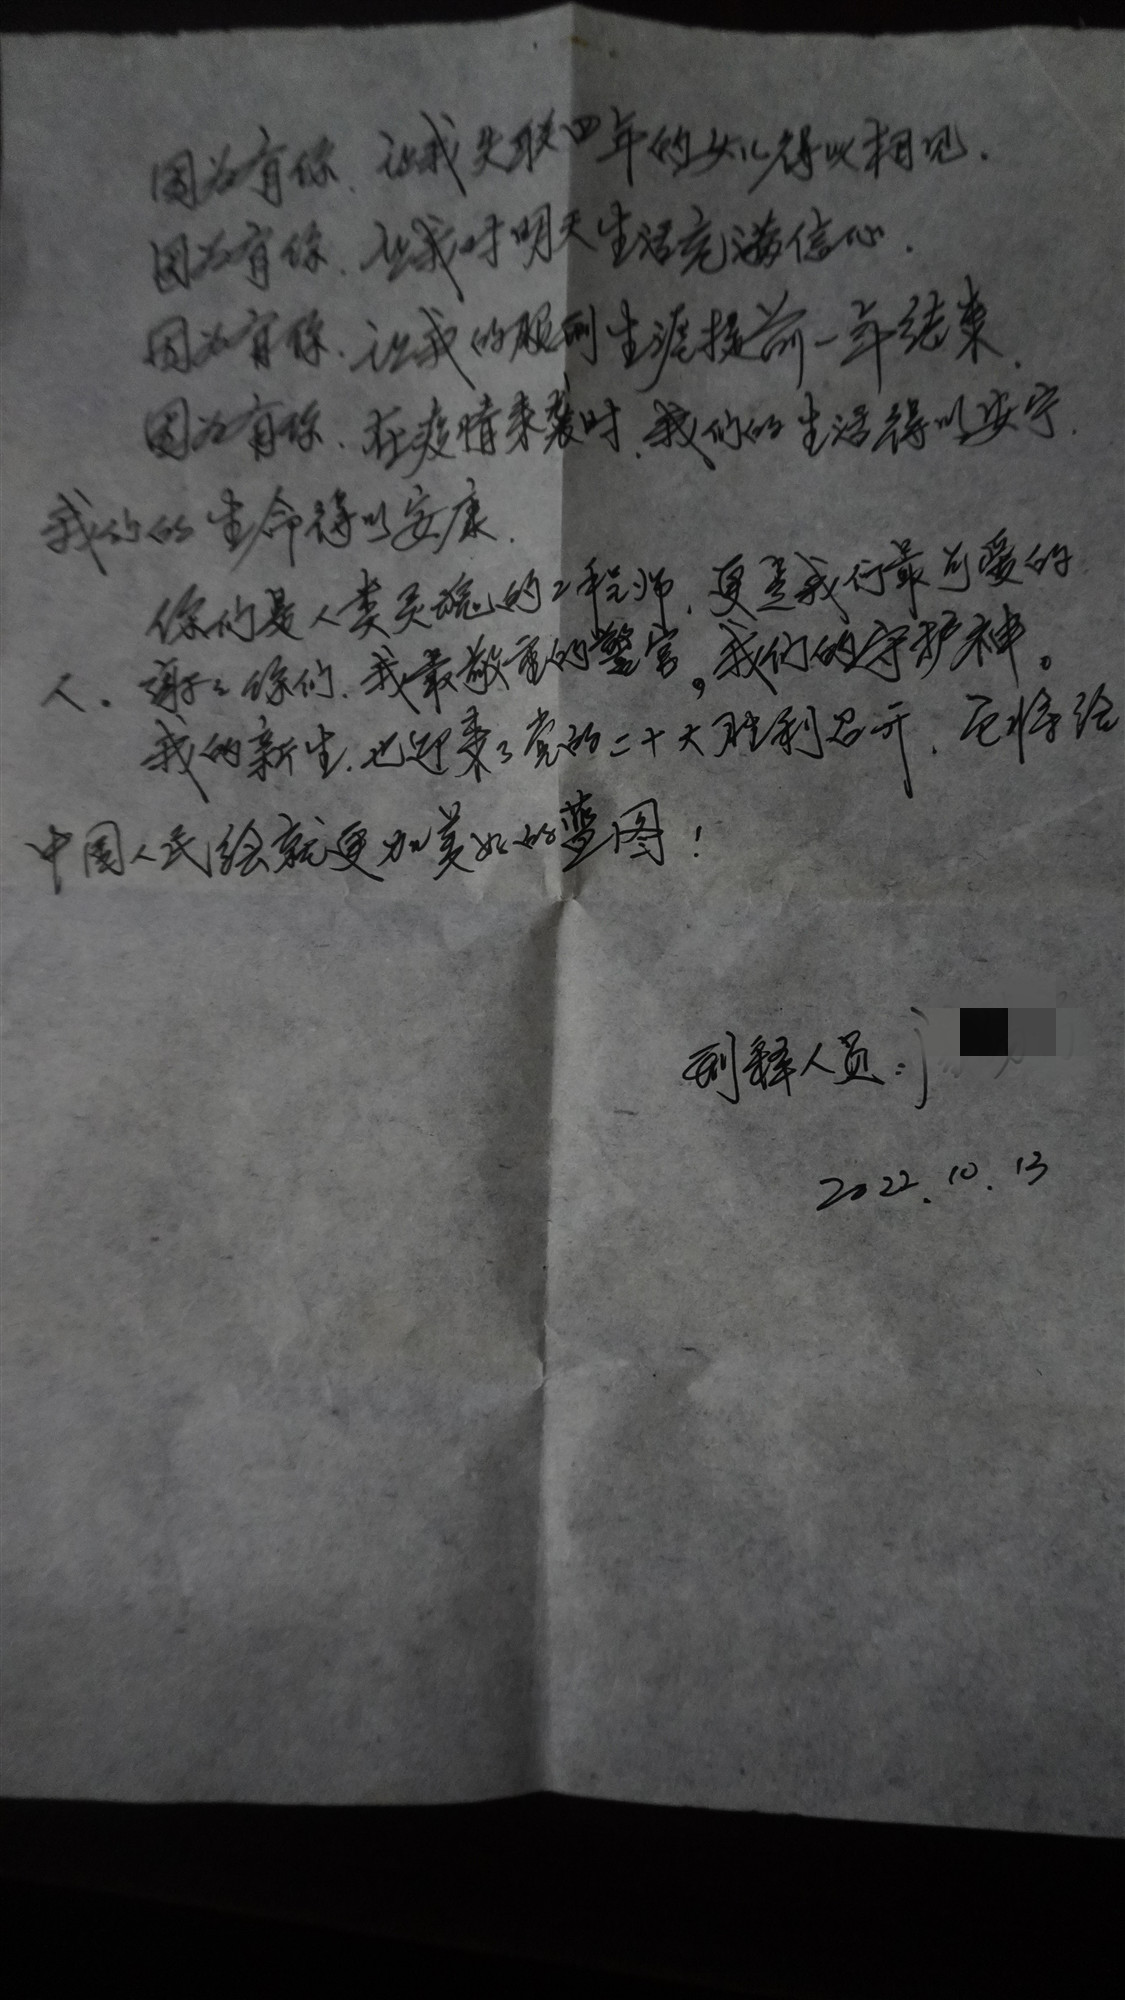 因为有你、让我失联四年的女儿得以相见.
因为有你、让我对明天生活充满信心.
因为有你、让我的服刑生涯提前一年结束.
因为有你、在疫情来袭时、我们的生活得以安宁.
我们的生命得以安康.
你们是人类灵魂的工程师、更是我们最可爱的
人。谢谢你们、我最敬重的警官,我们的守护神。
我的新生、也迎来了党的二十大胜利召开、它将给
中国人民绘就更加美好的蓝图!
刑释人员:
2022.10.13